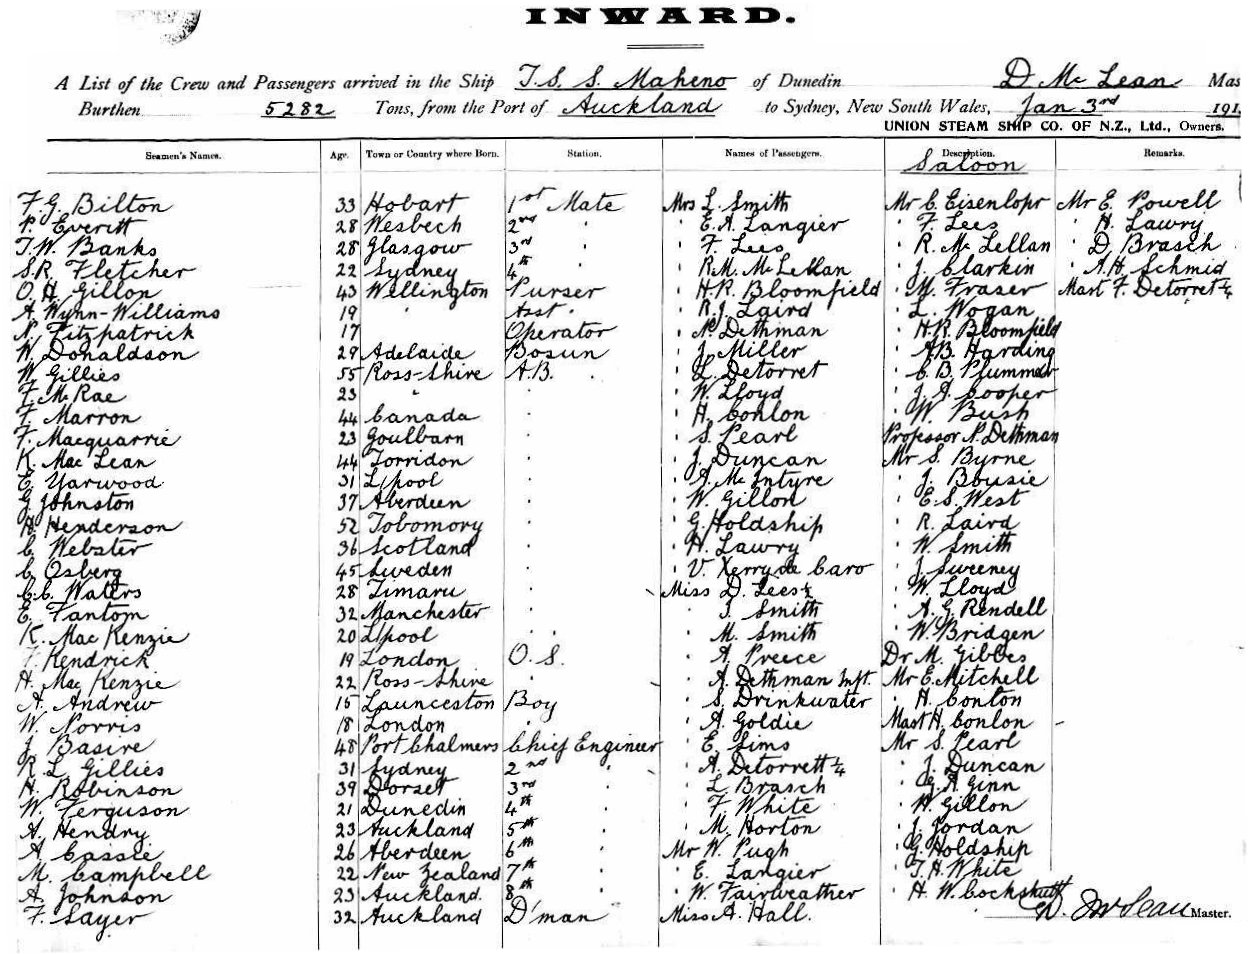 INWARD.
A List of the Crew and Passengers arrived in the Ship T.S.S. Maheno of Dunedin D. Mc Lean Mas
Burthen 5282 Tons, from the Port of Auckland to Sydney, New South Wales, Jan 3rd 191
UNION STEAM SHIP CO. OF N.Z., Ltd., Owners.
Seamen's Names. Age. Town or Country where Born. Station. Names of Passengers. Description. Remarks.
Saloon
F. G. Bilton 33 Hobart 1st Mate Mrs L. Smith Mr C. Eisenlopr Mr E. Powell
P. Everitt 28 Wesbech 2nd " " E. A. Langier " F. Lees " H. Lawry
T. W. Banks 28 Glasgow 3rd " " F. Lees " R. Mc Lellan " D. Brasch
S. R. Fletcher 22 Sydney 4th " " R. M. Mc Lellan " J. Clarkin " A. H. Schmid
O. H. Gillon 43 Wellington Purser " H R. Bloomfield " M. Fraser Mast F. Detorret ¼
A. Wynn-Williams 19 " Asst " " R. J. Laird " L. Wogan
N. Fitzpatrick 17 Operator " N. Dethman " H. R. Bloomfield
W. Donaldson 29 Adelaide Bosun " J. Miller " A. B. Harding
W. Gillies 55 Ross-Shire A.B. " L. Detorret " C. B. Plummer
F. Mc Rae 23 " " " W. Lloyd " J. A. Cooper
F. Marron 44 Canada " " H. Conlon " W. Bush
F. Macquarrie 23 Goulbarn " " S. Pearl Professor N. Dethman
K. Mac Lean 44 Torridon " " J. Duncan Mr S. Byrne
E. Yarwood 31 L/pool " " G. Mc Intyre " J. Bousie
G. Johnston 37 Aberdeen " " W. Gillon " E. S. West
H. Henderson 52 Tobomory " " G. Holdship " R. Laird
C. Webster 36 Scotland " " H. Lawry " W. Smith
C. Osberg 45 Sweden " " V. Kerry de Caro " J. Sweeney
C. C. Waters 28 Timaru " Miss D. Lees ½ " W. Lloyd
E. Fantom 32 Manchester " " J. Smith " A. G. Rendell
K. Mac Kenzie 20 L/pool " " " M. Smith " W. Bridgen
F. Kendrick 19 London O. S. " A. Preece Dr M. Gibbes
H. Mac Kenzie 22 Ross-Shire " " A. Dethman Inft. Mr E. Mitchell
A. Andrew 15 Launceston Boy " S. Drinkwater " H. Conlon
W. Norris 18 London " " A. Goldie Mast H. Conlon
J. Basire 48 Port Chalmers Chief Engineer " E. Sims Mr S. Pearl
R. L. Gillies 31 Sydney 2nd " " A. Detorrett ¼ " J. Duncan
H. Robinson 39 Dorset 3rd " " L. Brasch " G. A. Ginn
W. Ferguson 21 Dunedin 4th " " F. White " H. Gillon
A. Hendry 23 Auckland 5th " " M. Horton " J. Jordan
A. Cassie 26 Aberdeen 6th " Mr W. Pugh " G. Holdship
M. Campbell 22 New Zealand 7th " " E. Langier " T. H. White
A. Johnson 23 Auckland. 8th " " W. Fairweather " H. W. Cockshutt
F. Sayer 32 Auckland D'man Miss A. Hall. D. McLean Master.